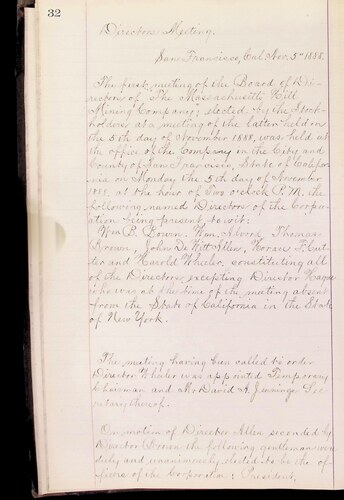 32
Directors Meeting.
San Francisco, Cal. Nov. 5th 1888.
The first meeting of the Board of Di-
rectors of "The Massachusetts Hill
Mining Company", elected by the Stock-
holders at a meeting of the latter held on
the 5th day of November 1888, was held at
the office of the Company in the City and
County of San Francisco, State of Califor-
nia on Monday the 5th day of November
1888, at the hour of Two o'clock P.M. the
following named Directors of the Corpor-
ation being present, to wit:
Wm B. Bourn, Wm. Alvord, Thomas
Brown, John De Witt Allen, Horace F. Cut-
ter and Harold Wheeler, constituting all
of the Directors, excepting Director Hague
who was at the time of the meeting absent
from the State of California in the State
of New York.
The meeting having been called to order
Director Wheeler was appointed Temporary
Chairman and Mr David A. Jennings Sec-
retary thereof.
On motion of Director Allen seconded by
Director Brown the following gentlemen were
duly and unanimously elected to be the of-
ficers of the Corporation: President,